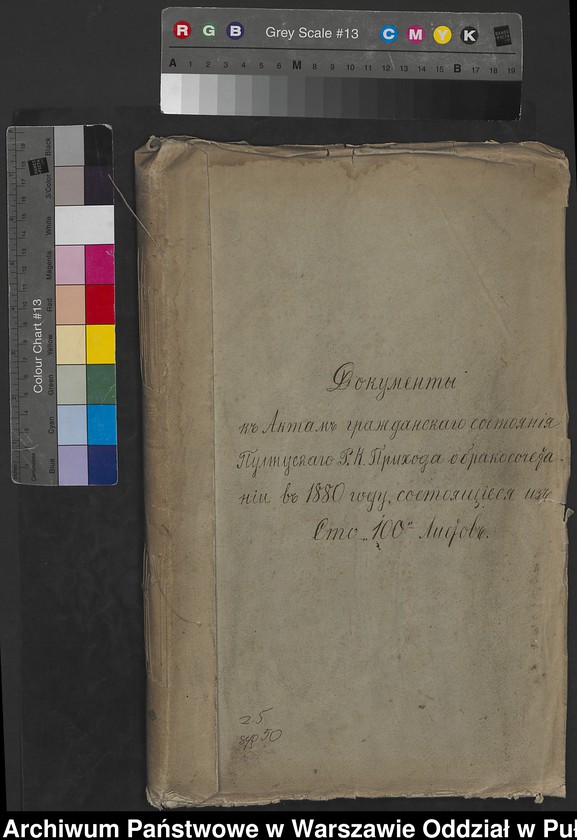 R G B Grey Scale #13 C M Y K
A 1 2 3 4 5 6 M 8 9 10 11 12 13 14 15 B 17 18 19
Colour Chart #13
Black
3/Color
White
Magenta
Red
Yellow
Green
Cyan
Blue
Документы
къ Актамъ гражданскаго состоянія
Пултускаго Р. К. Прихода о бракосочета-
ніи въ 1880 году, состоящіеся изъ
Сто „100“ Листовъ.
25
Archiwum Państwowe w Warszawie Oddział w Puł